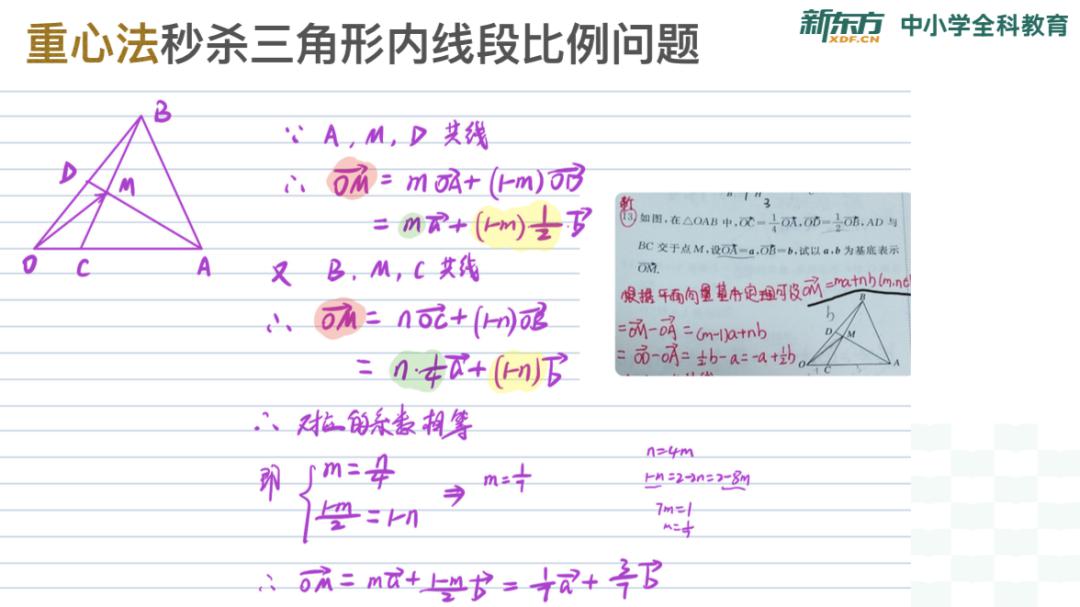 重心法秒杀三角形内线段比例问题
新东方 XDF.CN 中小学全科教育
B
D
M
O
C
A
∵ A, M, D 共线
∴ OM = mOA + (1-m)OD
= ma + (1-m)1/2·b
又 B, M, C 共线
∴ OM = nOC + (1-n)OB
= n·1/4a + (1-n)b
∴ 对应的系数相等
即 { m = n/4
(1-m)/2 = 1-n
⇒ m = 1/7
n=4m
1-m=2-2n=2-8m
7m=1
m=1/7
∴ OM = ma + (1-m)/2 b = 1/7a + 3/7b
13 如图,在△OAB 中,OC=1/4OA,OD=1/2OB,AD 与
BC 交于点 M,设OA=a,OB=b,试以 a,b 为基底表示
OM.
根据平面向量基本定理可设OM=ma+nb(m,n∈
=OM-OA=(m-1)a+nb
=OD-OA=1/2b-a=-a+1/2b
B
b
D
M
O
C
A